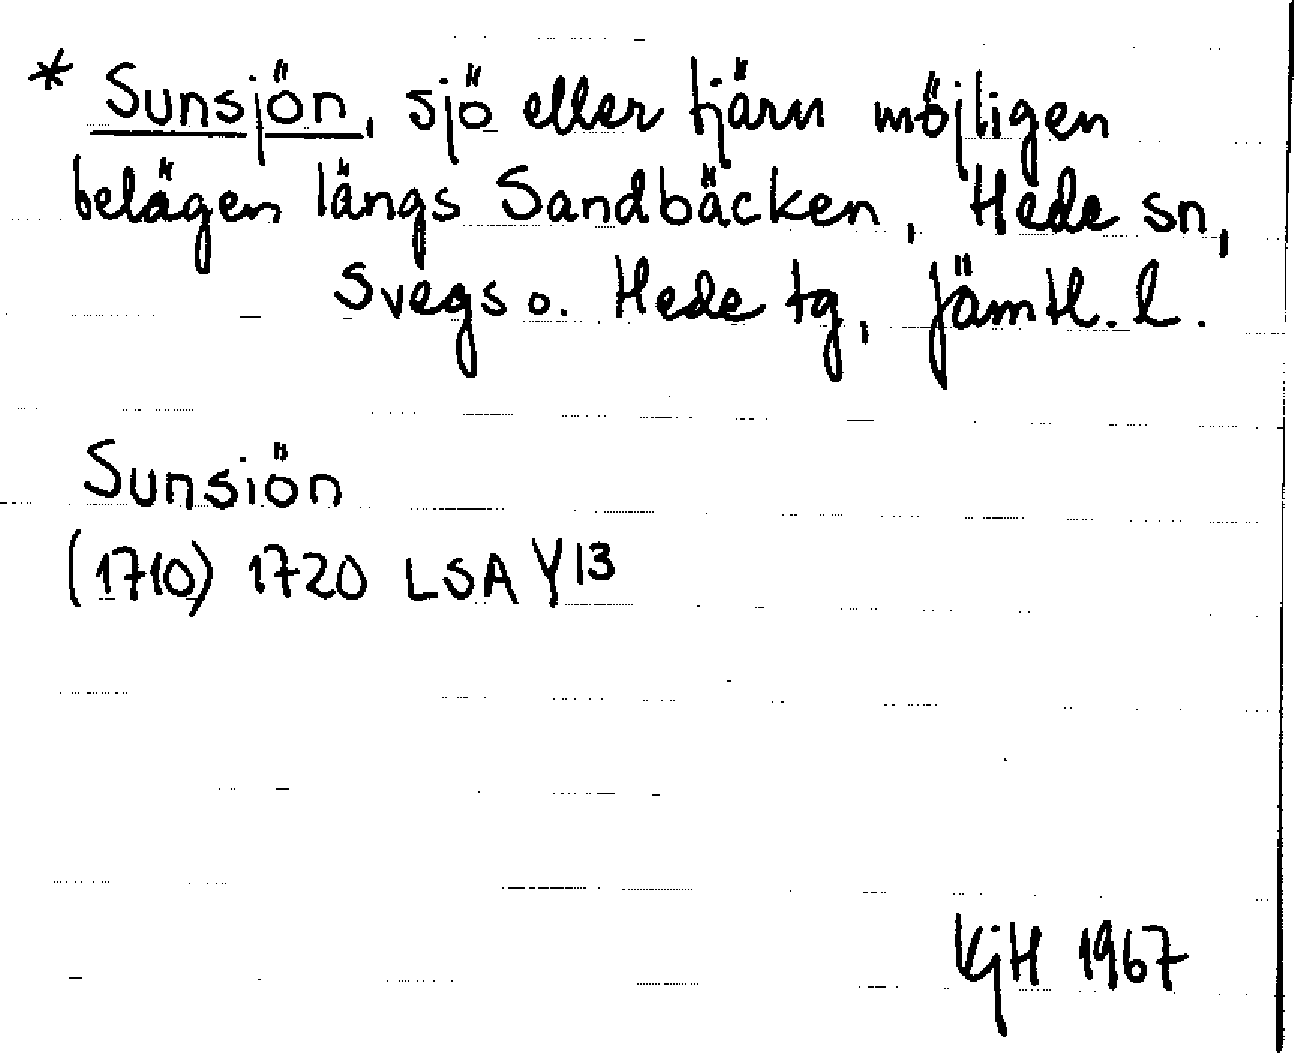 * Sunsjön, sjö eller tjärn möjligen
belägen längs Sandbäcken, Hede sn,
Svegs o. Hede tg, Jämtl. l.
Sunsiön
(1710) 1720 LSA Y13
KjH 1967